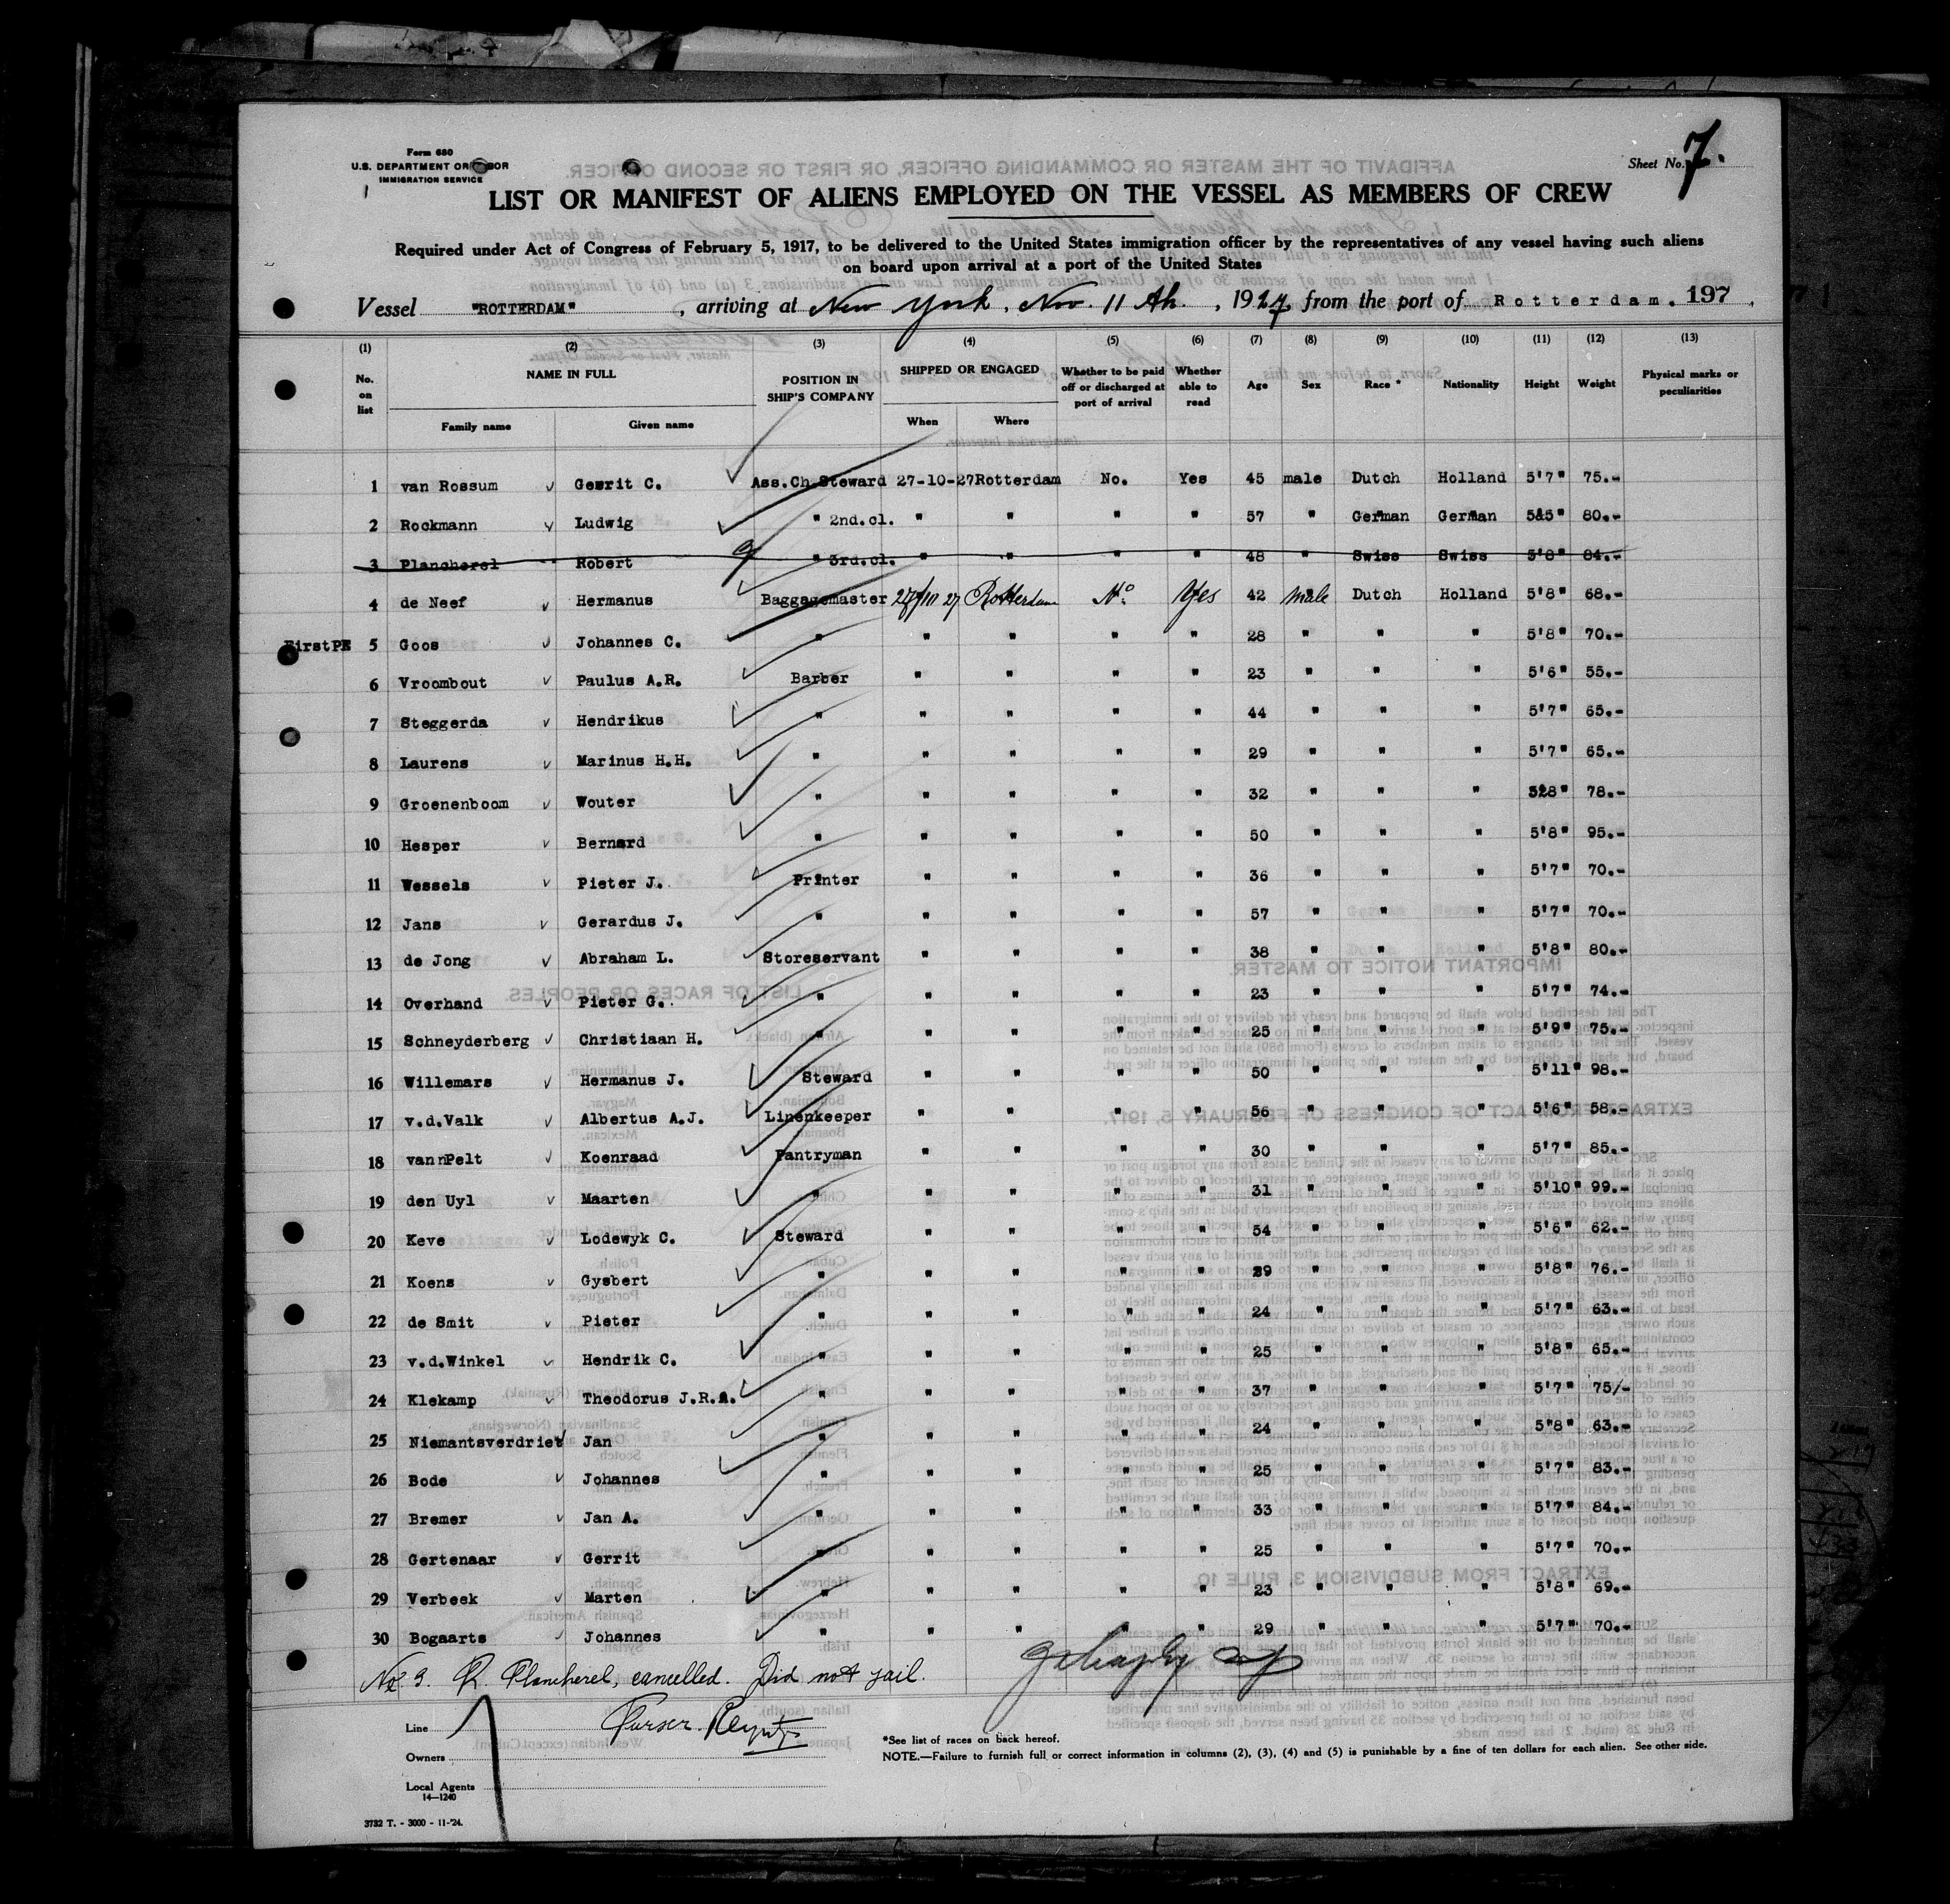 Form 680
U.S. DEPARTMENT OF LABOR
IMMIGRATION SERVICE
Sheet No. 7.
LIST OR MANIFEST OF ALIENS EMPLOYED ON THE VESSEL AS MEMBERS OF CREW
Required under Act of Congress of February 5, 1917, to be delivered to the United States immigration officer by the representatives of any vessel having such aliens
on board upon arrival at a port of the United States
Vessel "ROTTERDAM", arriving at New York, Nov. 11 th., 1927 from the port of Rotterdam. 197
(1) (2) (3) (4) (5) (6) (7) (8) (9) (10) (11) (12) (13)
No. on list NAME IN FULL POSITION IN SHIP'S COMPANY SHIPPED OR ENGAGED Whether to be paid off or discharged at port of arrival Whether able to read Age Sex Race * Nationality Height Weight Physical marks or peculiarities
Family name Given name When Where
1 van Rossum Gerrit C. Ass.Ch.Steward 27-10-27 Rotterdam No. Yes 45 male Dutch Holland 5'7" 75.-
2 Rockmann Ludwig " 2nd.cl. " " " " 57 " German German 5'5" 80.-
3 Plancherel Robert " 3rd.cl. " " " " 48 " Swiss Swiss 5'8" 84.-
4 de Neef Hermanus Baggagemaster 27/10 27 Rotterdam No. Yes 42 male Dutch Holland 5'8" 68.-
FirstPE 5 Goos Johannes C. " " " " " 28 " " " 5'8" 70.-
6 Vroombout Paulus A.R. Barber " " " " 23 " " " 5'6" 55.-
7 Steggerda Hendrikus " " " " " 44 " " " 5'7" 65.-
8 Laurens Marinus H.H. " " " " " 29 " " " 5'7" 65.-
9 Groenenboom Wouter " " " " " 32 " " " 5'8" 78.-
10 Hesper Bernard " " " " " 50 " " " 5'8" 95.-
11 Wessels Pieter J. Printer " " " " 36 " " " 5'7" 70.-
12 Jans Gerardus J. " " " " " 57 " " " 5'7" 70.-
13 de Jong Abraham L. Storeservant " " " " 38 " " " 5'8" 80.-
14 Overhand Pieter G. " " " " " 23 " " " 5'7" 74.-
15 Schneyderberg Christiaan H. " " " " " 25 " " " 5'9" 75.-
16 Willemars Hermanus J. Steward " " " " 50 " " " 5'11" 98.-
17 v.d.Valk Albertus A.J. Linenkeeper " " " " 56 " " " 5'6" 58.-
18 vannPelt Koenraad Pantryman " " " " 30 " " " 5'7" 85.-
19 den Uyl Maarten " " " " " 31 " " " 5'10" 99.-
20 Keve Lodewyk C. Steward " " " " 54 " " " 5'6" 62.-
21 Koens Gysbert " " " " " 29 " " " 5'8" 76.-
22 de Smit Pieter " " " " " 24 " " " 5'7" 63.-
23 v.d.Winkel Hendrik C. " " " " " 25 " " " 5'8" 65.-
24 Klekamp Theodorus J.R.A. " " " " " 37 " " " 5'7" 75/-
25 Niemantsverdriet Jan " " " " " 24 " " " 5'8" 63.-
26 Bode Johannes " " " " " 25 " " " 5'7" 83.-
27 Bremer Jan A. " " " " " 33 " " " 5'7" 84.-
28 Gertenaar Gerrit " " " " " 25 " " " 5'7" 70.-
29 Verbeek Marten " " " " " 23 " " " 5'8" 69.-
30 Bogaarts Johannes " " " " " 29 " " " 5'7" 70.-
No. 3. R. Plancherel, cancelled. Did not sail.
Line
Purser.
Owners
Local Agents
14—1240
*See list of races on back hereof.
NOTE.—Failure to furnish full or correct information in columns (2), (3), (4) and (5) is punishable by a fine of ten dollars for each alien. See other side.
3732 T. - 3000 - 11-'24.